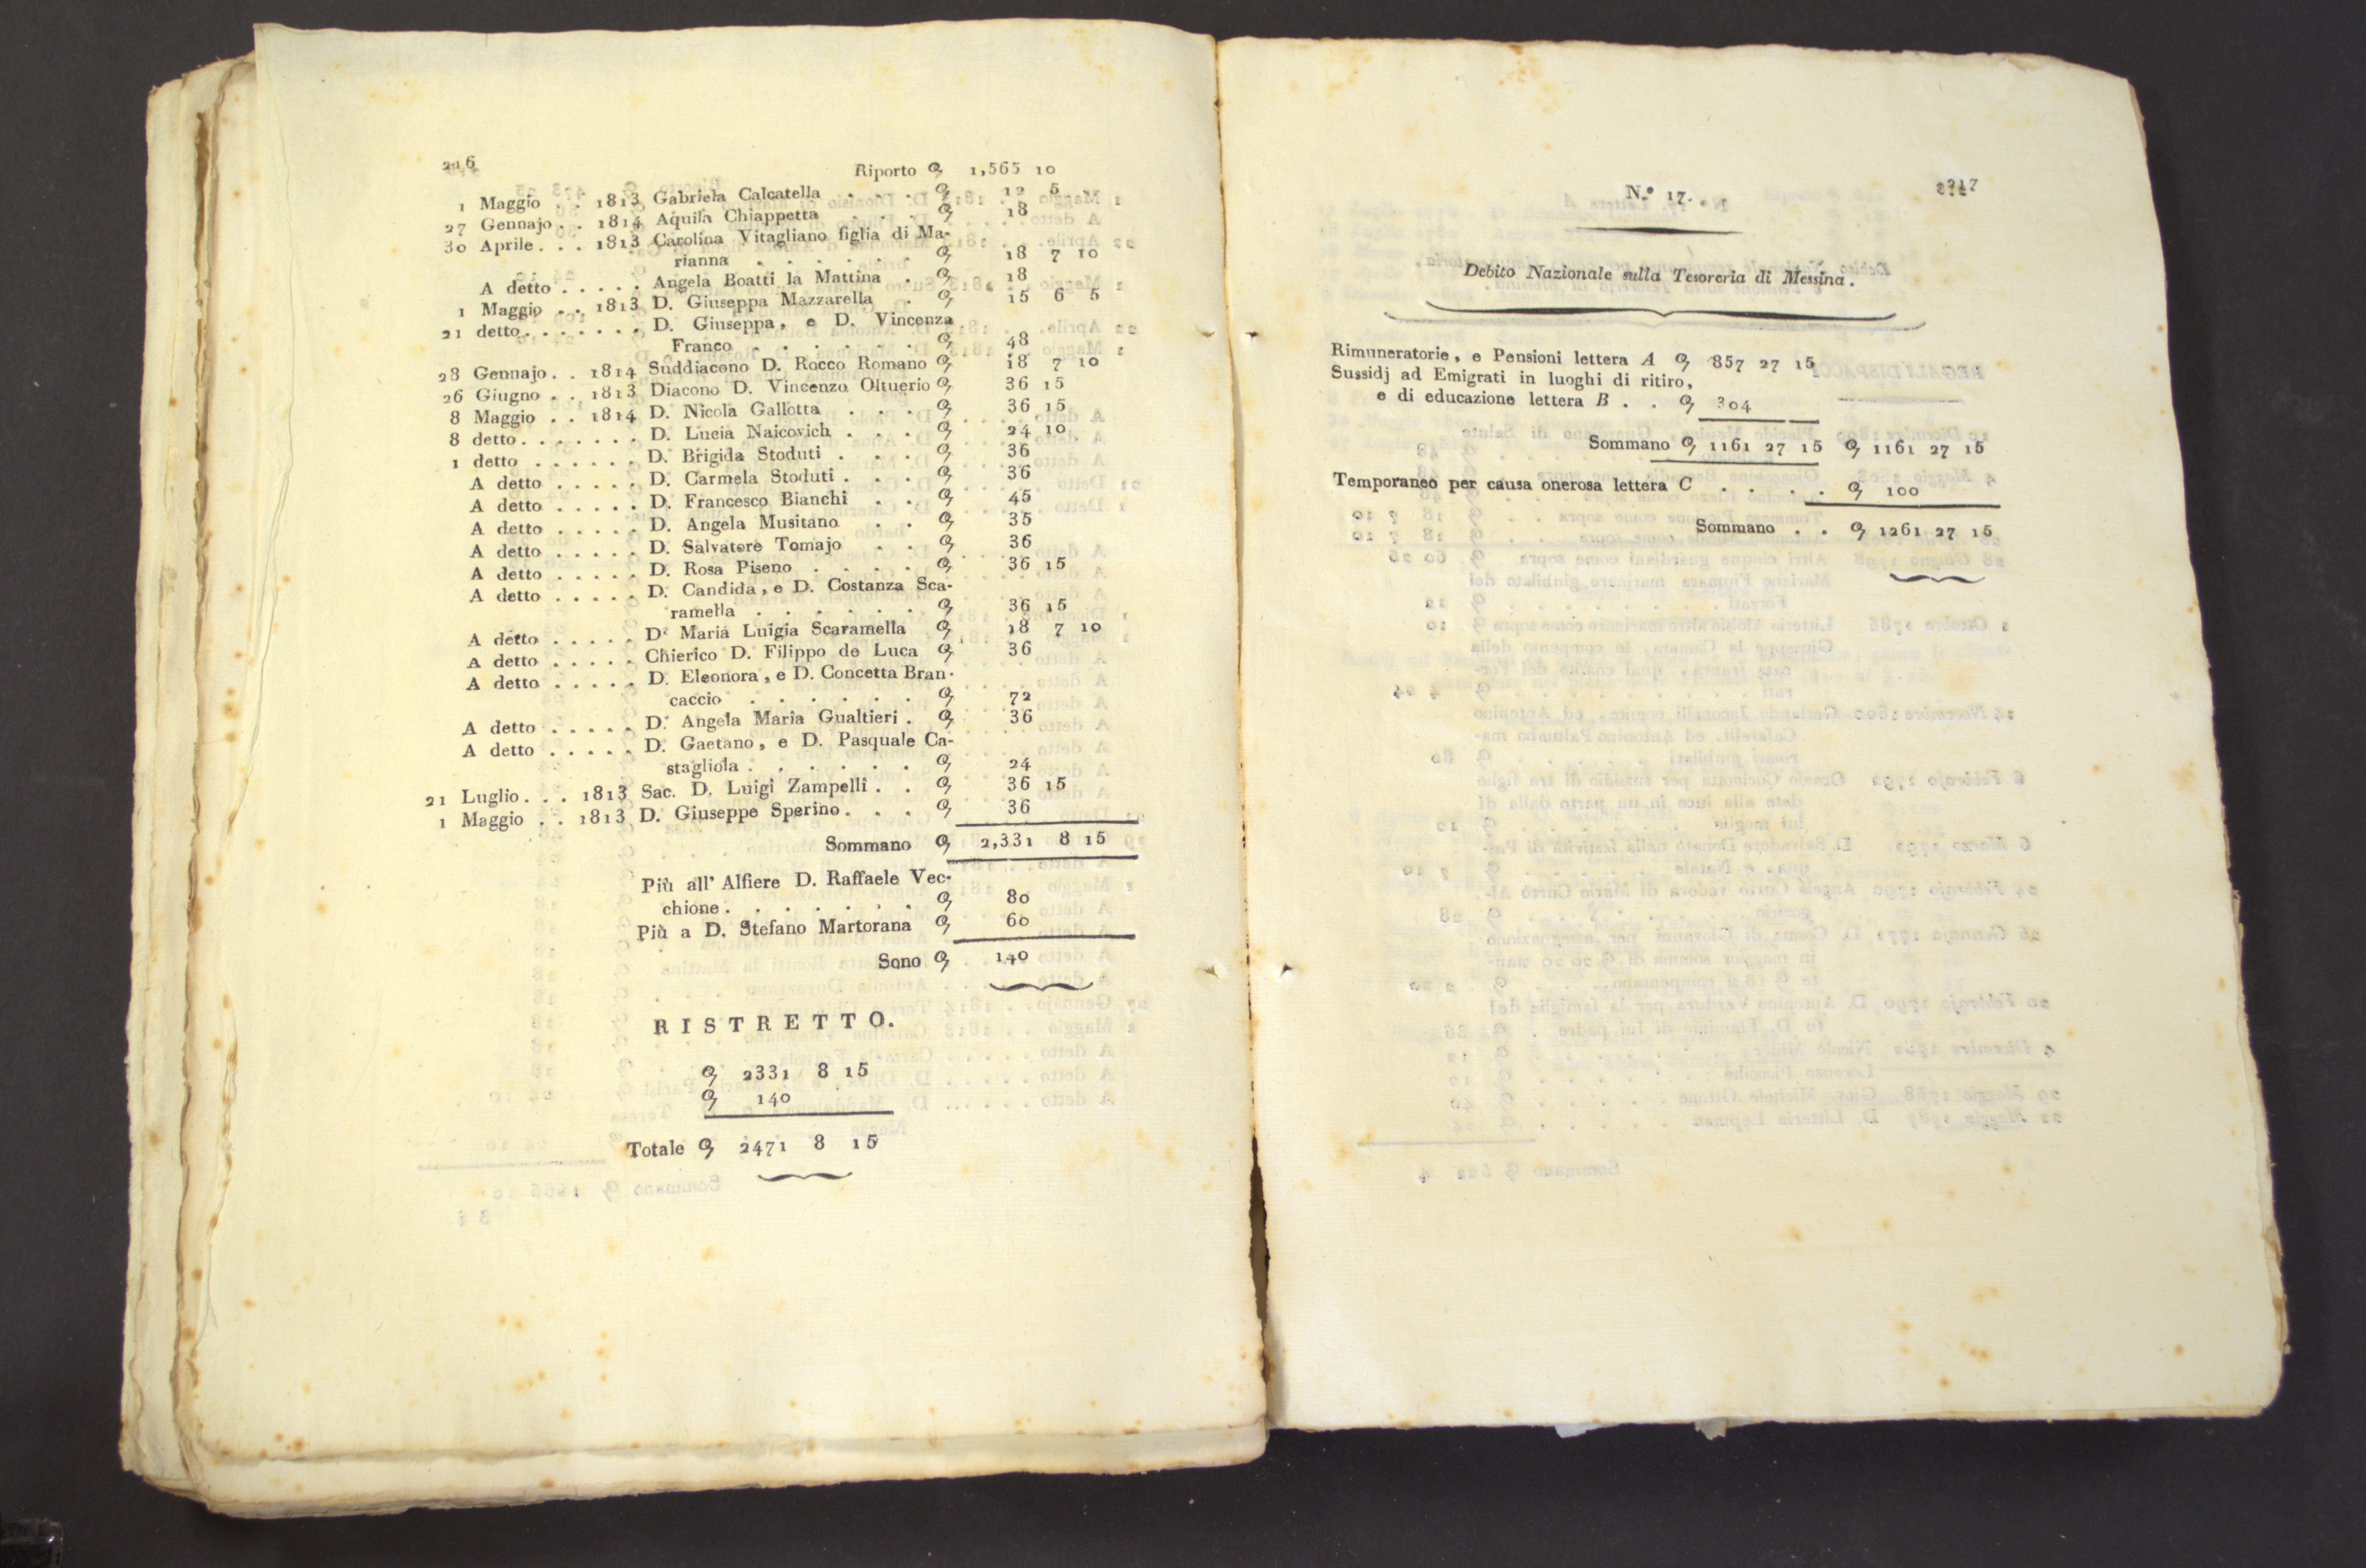 216
Riporto 1,565 10
1 Maggio . . 1813 Gabriela Calcatella . . . 12 5
27 Gennajo . . 1814 Aquila Chiappetta . . . 18
30 Aprile . . . 1813 Carolina Vitagliano figlia di Ma-
rianna . . . . . . 18 7 10
A detto . . . . . Angela Boatti la Mattina . 18
1 Maggio . . 1813 D. Giuseppa Mazzarella . 15 6 5
21 detto . . . . . . . D. Giuseppa, e D. Vincenza
Franco . . . . . . 48
28 Gennajo . . 1814 Suddiacono D. Rocco Romano 18 7 10
26 Giugno . . 1813 Diacono D. Vincenzo Oltuerio 36 15
8 Maggio . . 1814 D. Nicola Gallotta . . . 36 15
8 detto . . . . . . . D. Lucia Naicovich . . . 24 10
1 detto . . . . . . D. Brigida Stoduti . . . 36
A detto . . . . . D. Carmela Stoduti . . . 36
A detto . . . . . D. Francesco Bianchi . . 45
A detto . . . . . D. Angela Musitano . . 35
A detto . . . . . D. Salvatore Tomajo . . 36
A detto . . . . . D. Rosa Piseno . . . . 36 15
A detto . . . . . D. Candida, e D. Costanza Sca-
ramella . . . . . . 36 15
A detto . . . . . D. Maria Luigia Scaramella 18 7 10
A detto . . . . . Chierico D. Filippo de Luca 36
A detto . . . . . D. Eleonora, e D. Concetta Bran-
caccio . . . . . . 72
A detto . . . . . D. Angela Maria Gualtieri . 36
A detto . . . . . D. Gaetano, e D. Pasquale Ca-
stagliola . . . . . . 24
21 Luglio . . . 1813 Sac. D. Luigi Zampelli . . 36 15
1 Maggio . . 1813 D. Giuseppe Sperino . . . 36
Sommano 2,331 8 15
Più all' Alfiere D. Raffaele Vec-
chione . . . . . . . 80
Più a D. Stefano Martorana 60
Sono 140
RISTRETTO.
2331 8 15
140
Totale 2471 8 15
217
N.º 17.
Debito Nazionale sulla Tesoreria di Messina.
Rimuneratorie, e Pensioni lettera A 857 27 15
Sussidj ad Emigrati in luoghi di ritiro,
e di educazione lettera B . . 304
Sommano 1161 27 15 1161 27 15
Temporaneo per causa onerosa lettera C . . . . 100
Sommano . . 1261 27 15